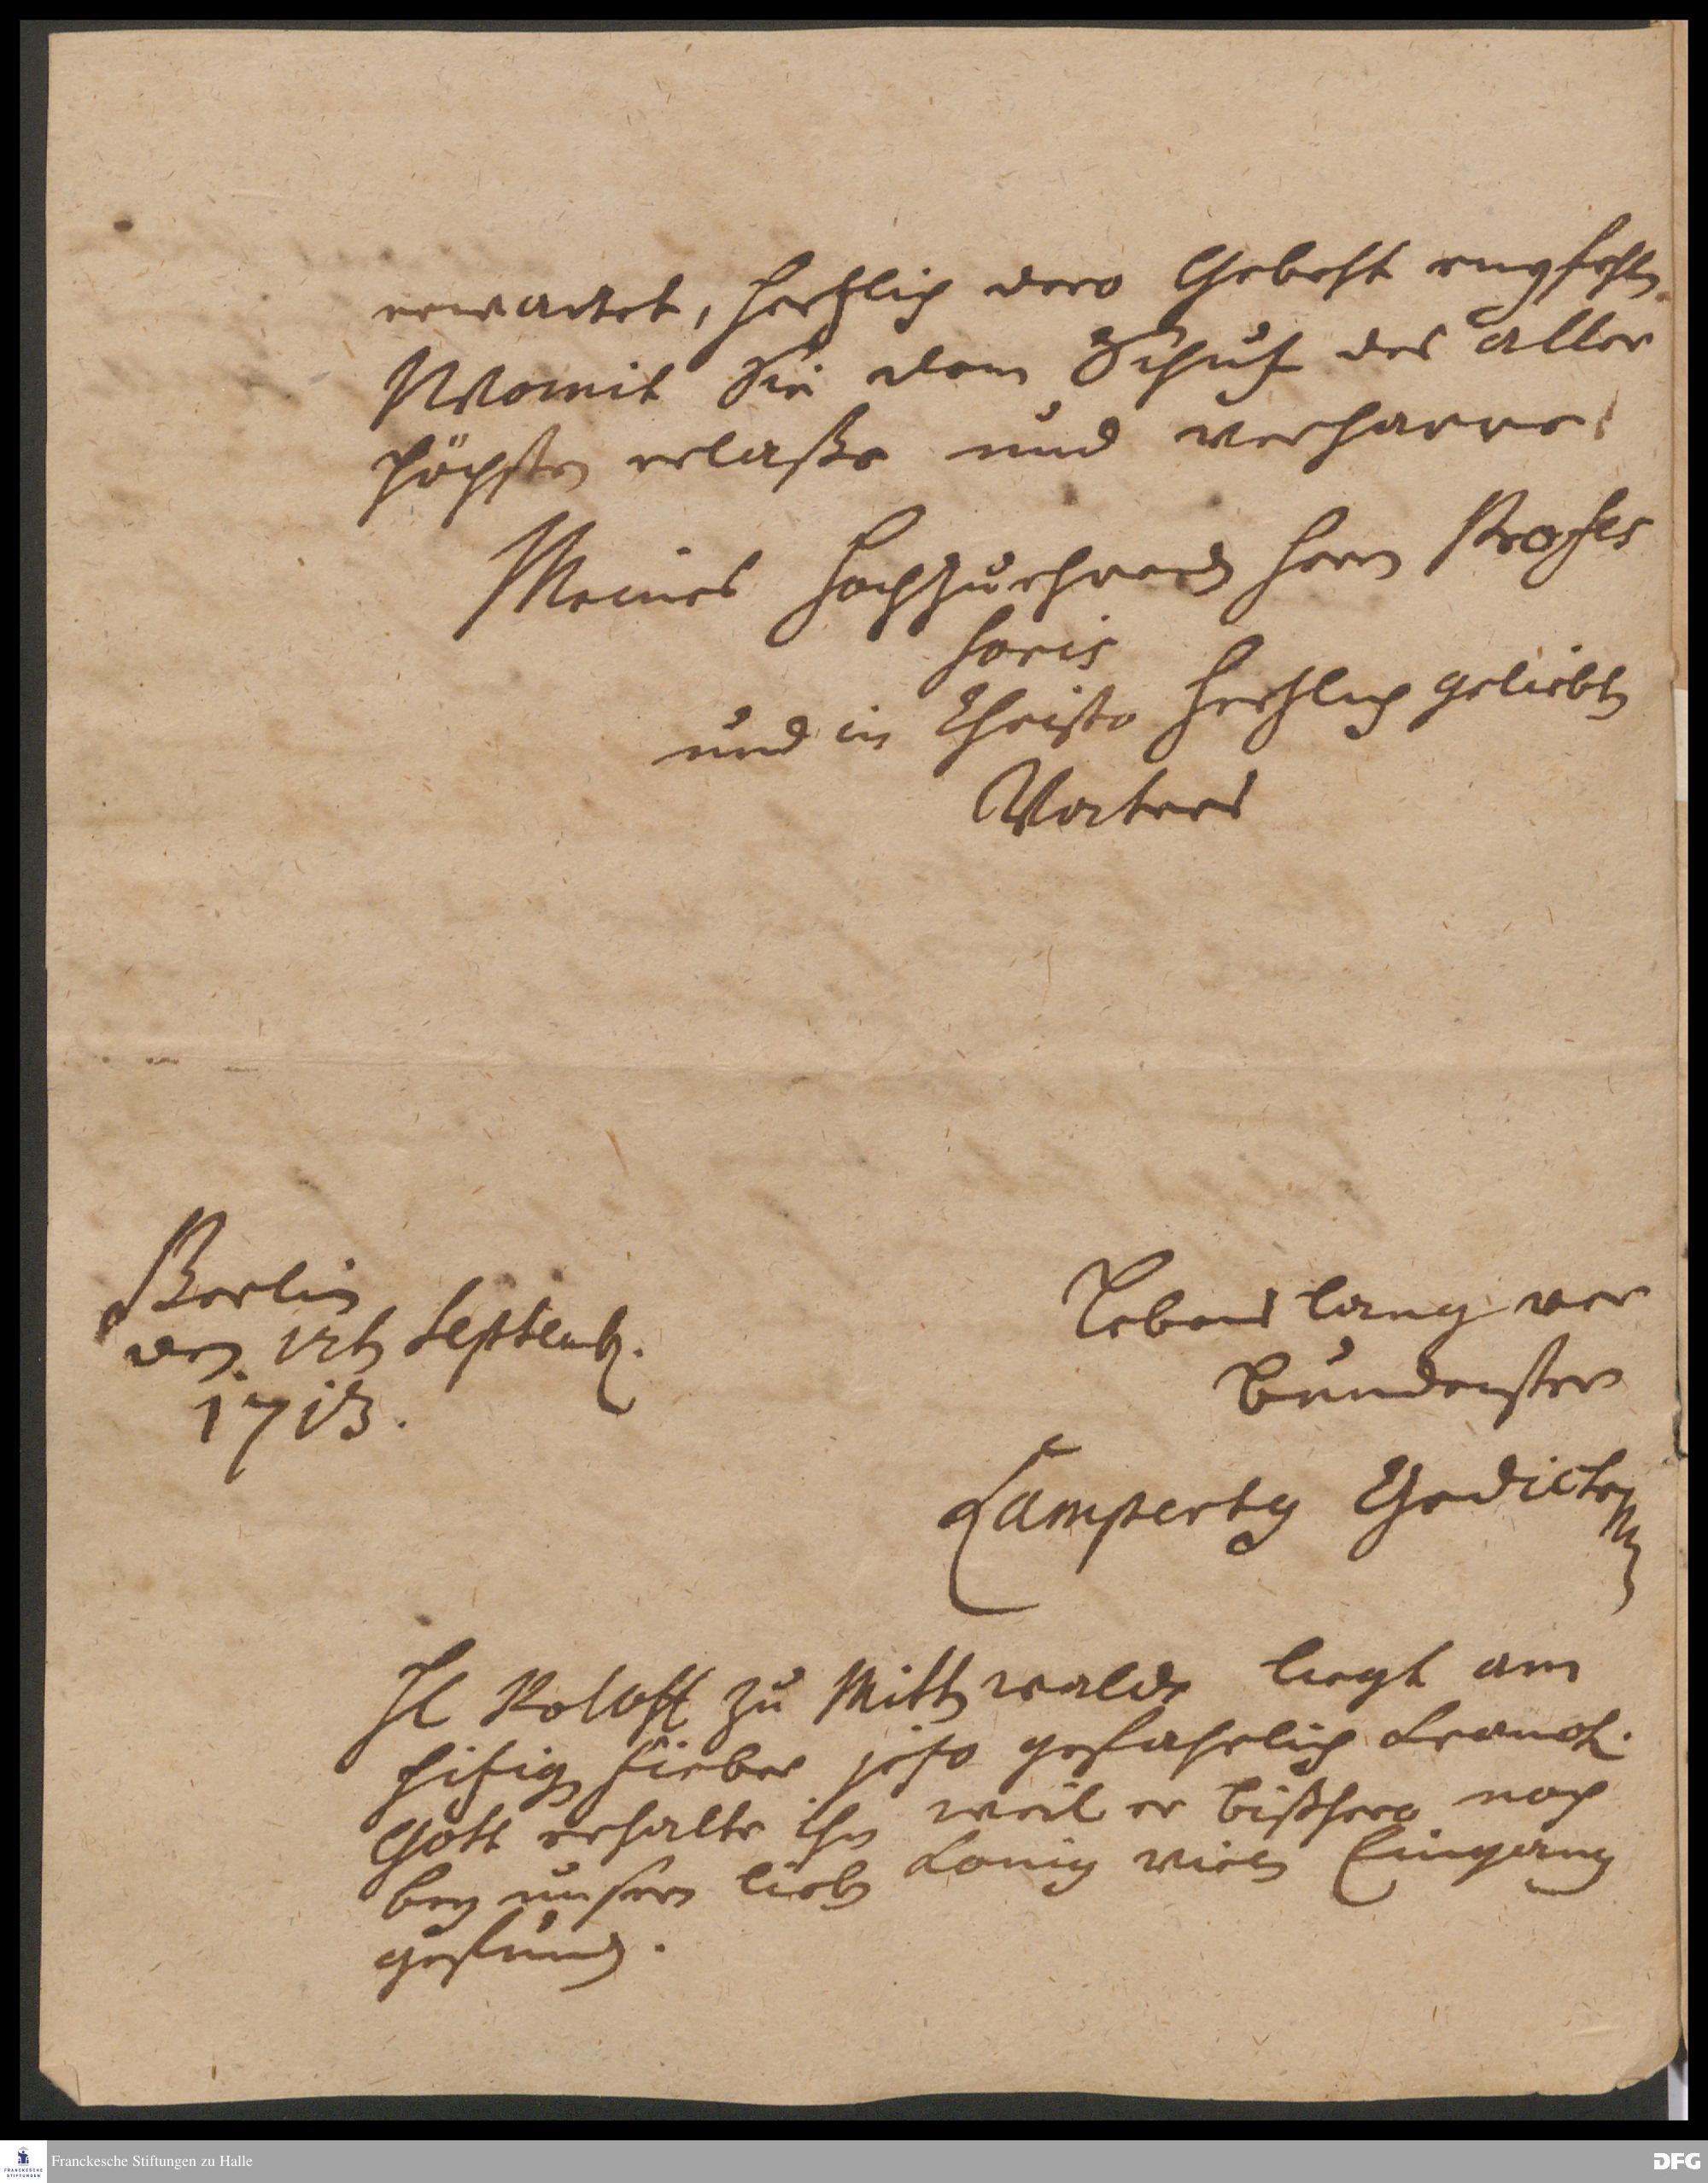 erwartet, hertzlich dero Gebeht empfehle.
Womit Sie dem Schutz des aller
höchsten erlaße und verharre
Meines Hochzuehrend Herrn Profes
soris
und in Christo hertzlich geliebten
Vaters
Berlin
den Septemb.
1713.
Lebens lang ver
bundenster
Lampertg Gedicke
H Roloff zu Mittenwalde liegt am
hitzigen Fieber jetzo gefahrlich kranck.
Gott erhalte ihn weil er bißhero noch
bey unsern lieben König vielen Eingang
gefunden.
Franckesche Stiftungen zu Halle
FRANCKESCHE STIFTUNGEN
DFG